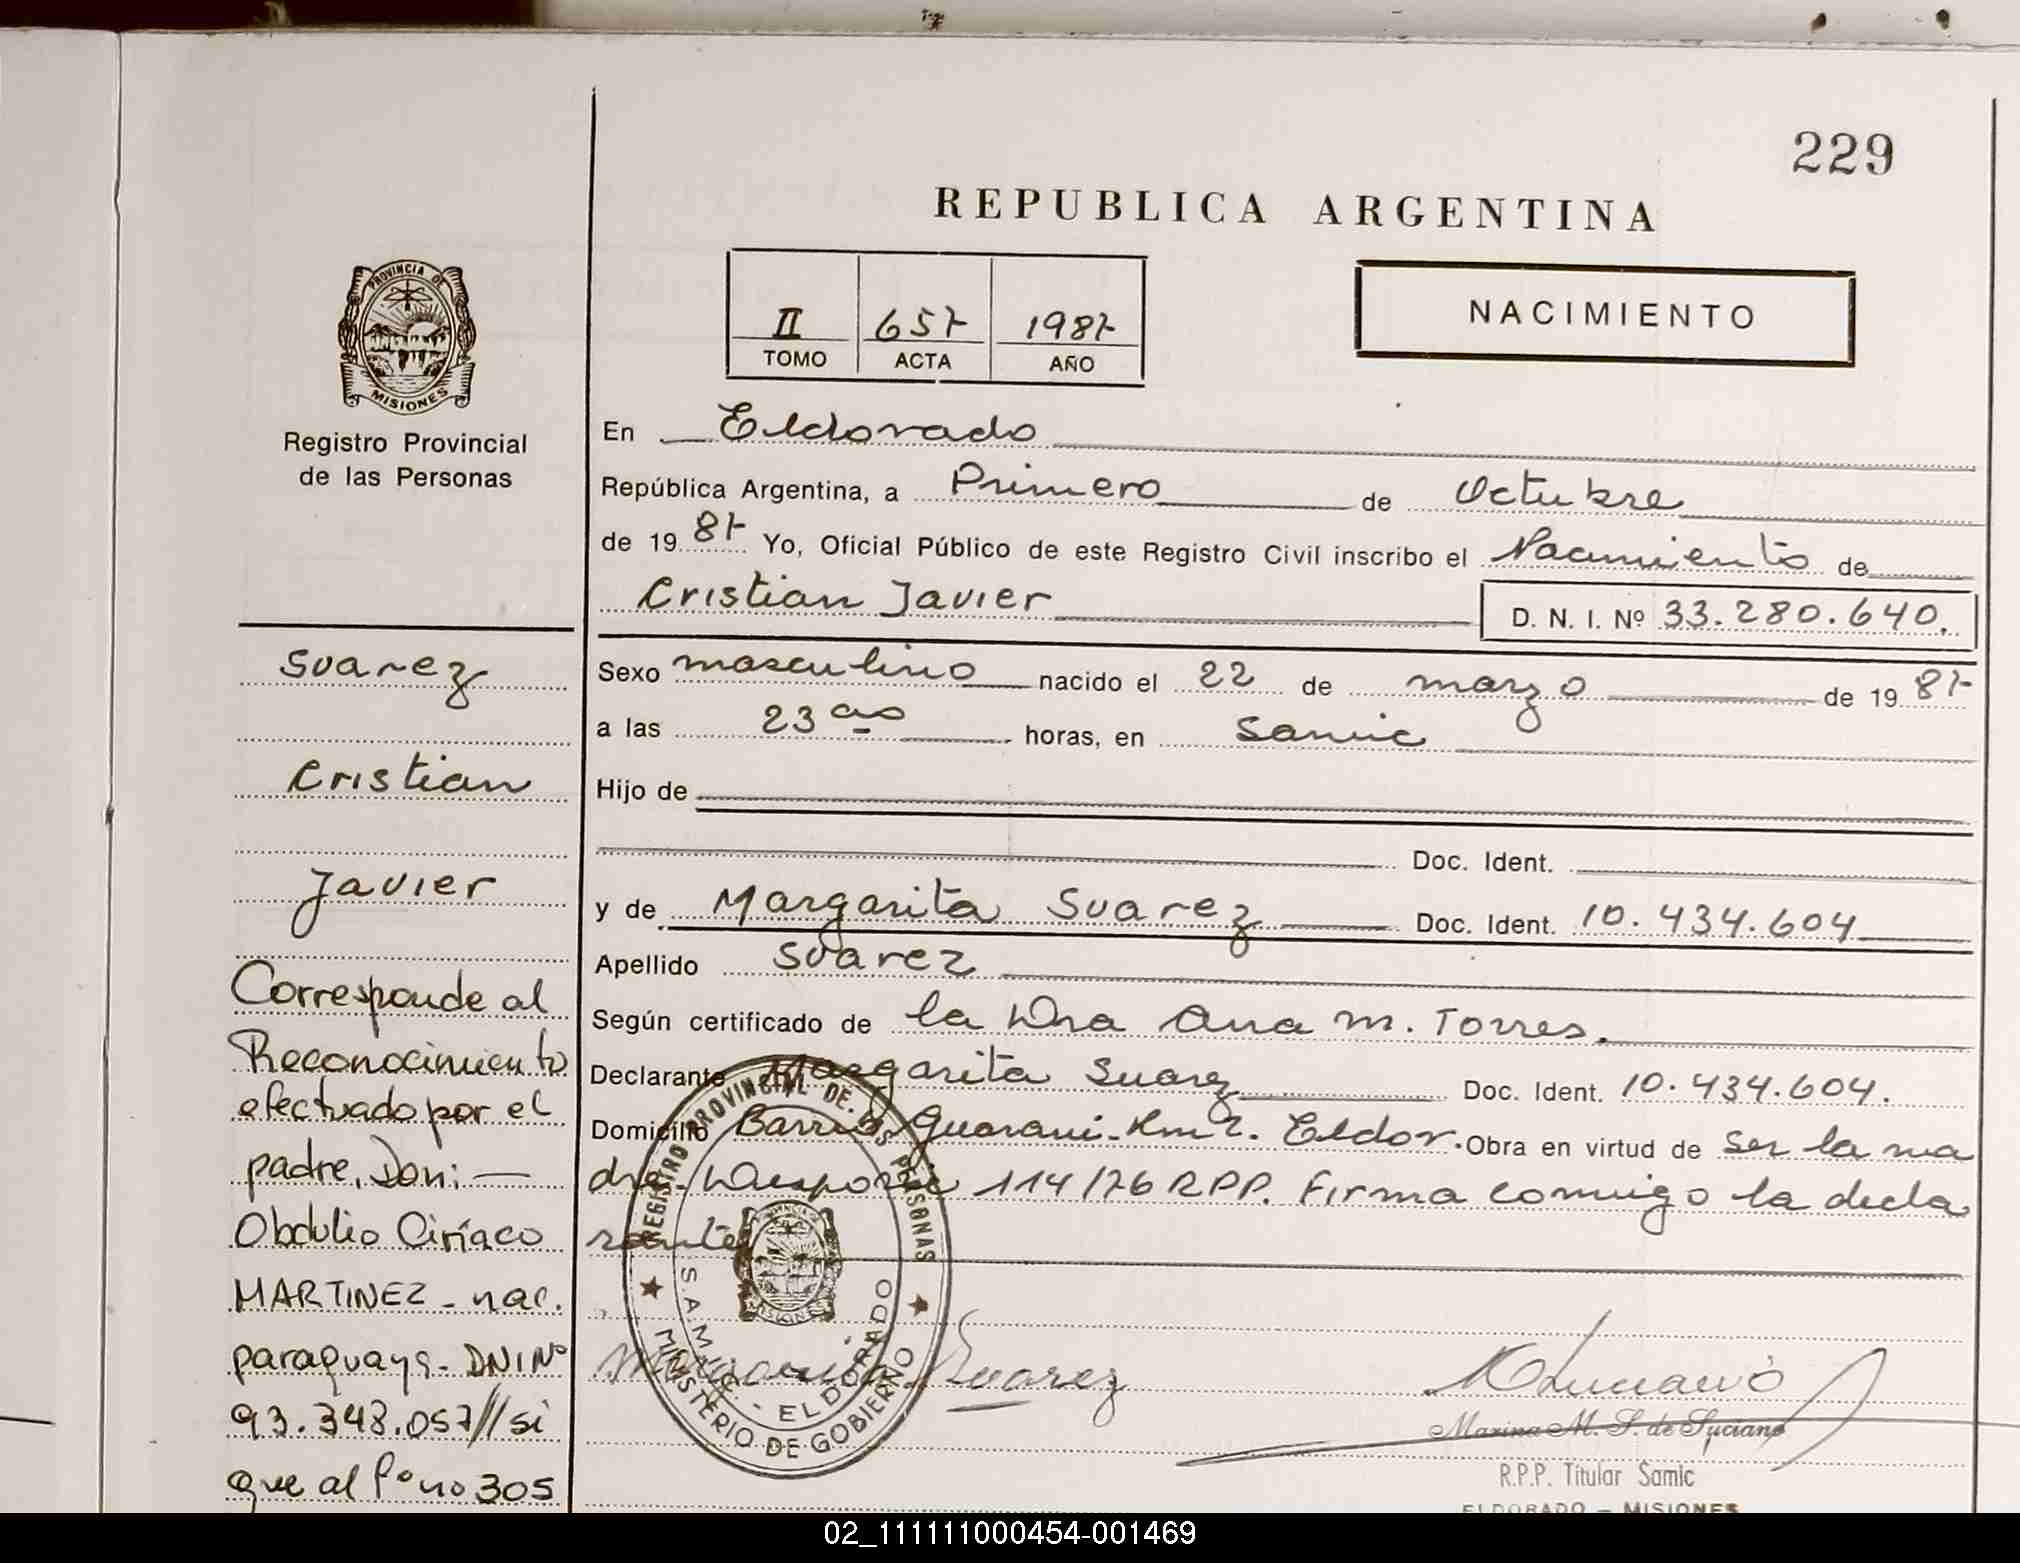 229
REPUBLICA ARGENTINA
II 657 1987
TOMO ACTA AÑO
NACIMIENTO
PROVINCIA DE
MISIONES
Registro Provincial
de las Personas
En Eldorado
República Argentina, a Primero de Octubre
de 1987 Yo, Oficial Público de este Registro Civil inscribo el Nacimiento de
Cristian Javier D. N. I. Nº 33.280.640.
Sexo masculino nacido el 22 de marzo de 1987
a las 23 horas, en Samic
Hijo de
Doc. Ident.
y de Margarita Suarez Doc. Ident. 10.434.604
Apellido Suarez
Según certificado de la Dra Ana M. Torres.
Declarante Margarita Suarez Doc. Ident. 10.434.604.
Domicilio Barrio Guarani-Km 2. Eldor. Obra en virtud de ser la ma
dre. 114/76 RPP. Firma conmigo la decla
rante
Suarez
Cristian
Javier
Corresponde al
Reconocimiento
efectuado por el
padre, Don: —
Obdulio Ciríaco
MARTINEZ - nac.
paraguaya - DNI Nº
93.348.057// si
que al fº no 305
REGISTRO PROVINCIAL DE LAS PERSONAS
S.A.M.I.C. - ELDORADO
MINISTERIO DE GOBIERNO
MISIONES
Margarita Suarez
Marina M. S. de Luciano
R.P.P. Titular Samic
ELDORADO – MISIONES
02_111111000454-001469